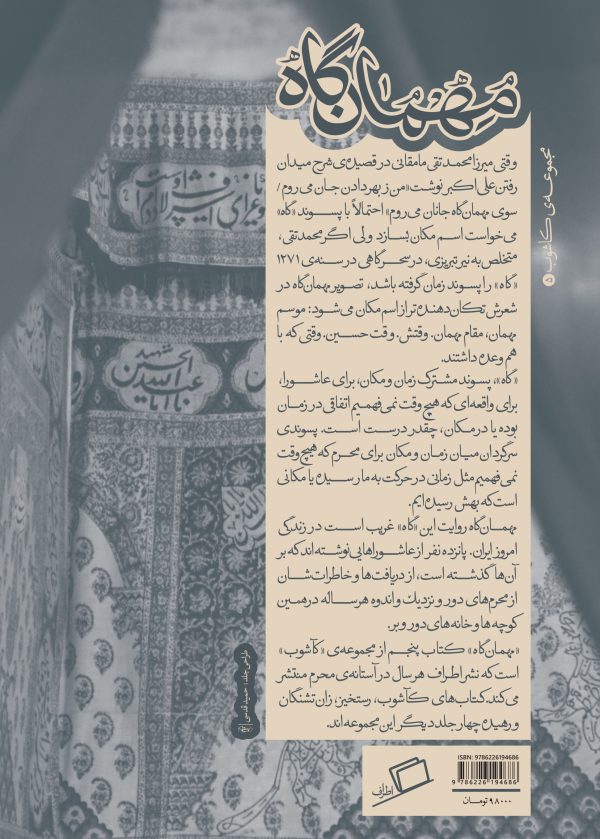 مهمان‌گاه
مجموعه‌ی کآشوب ۵
وقتی میرزا محمد تقی مامقانی در قصیده‌ی شرح میدان
رفتن علی اکبر نوشت «من ز بهر دادن جان می‌روم /
سوی مهمان‌گاه جانان می‌روم» احتمالاً با پسوند «گاه»
می‌خواست اسم مکان بسازد ولی اگر محمدتقی،
متخلص به نیر تبریزی، در سحرگاهی در سنه‌ی ۱۲۷۱
«گاه» را پسوند زمان گرفته باشد، تصویر مهمان‌گاه در
شعرش تکان‌دهنده‌تر از اسم مکان می‌شود: موسم
مهمان، مقام مهمان. وقتش. وقت حسین. وقتی که با
هم وعده داشتند.
«گاه»، پسوند مشترک زمان و مکان، برای عاشورا،
برای واقعه‌ای که هیچ وقت نمی‌فهمیم اتفاقی در زمان
بوده یا در مکان، چقدر درست است. پسوندی
سرگردان میان زمان و مکان برای محرم که هیچ وقت
نمی‌فهمیم مثل زمانی در حرکت به ما رسیده یا مکانی
است که بهش رسیده‌ایم.
مهمان‌گاه روایت این «گاه» غریب است در زندگی
امروز ایران. پانزده نفر از عاشوراهایی نوشته‌اند که بر
آن‌ها گذشته است، از دریافت‌ها و خاطرات‌شان
از محرم‌های دور و نزدیک و اندوه هرساله در همین
کوچه‌ها و خانه‌های دور و بر.
«مهمان‌گاه» کتاب پنجم از مجموعه‌ی «کآشوب»
است که نشر اطراف هر سال در آستانه‌ی محرم منتشر
می‌کند. کتاب‌های کآشوب، رستخیز، زان تشنگان
و رهیده چهار جلد دیگر این مجموعه‌اند.
طراحی جلد: حمید قدسی
اطراف
ISBN: 9786226194686
9 786226 194686
۹۸۰۰۰ تومان
شهید
اباعبدالله الحسین